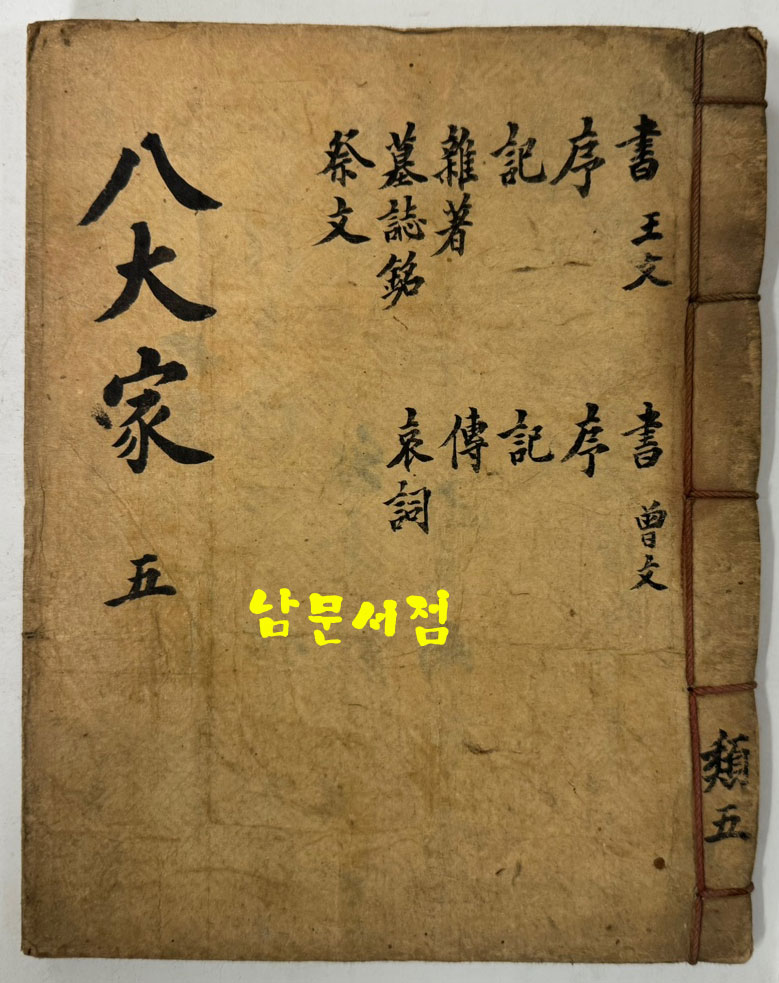 書 王文
序
記
雜著
墓誌銘
祭文
書 曾文
序
記
傳
哀詞
八大家 五
類五
남문서점